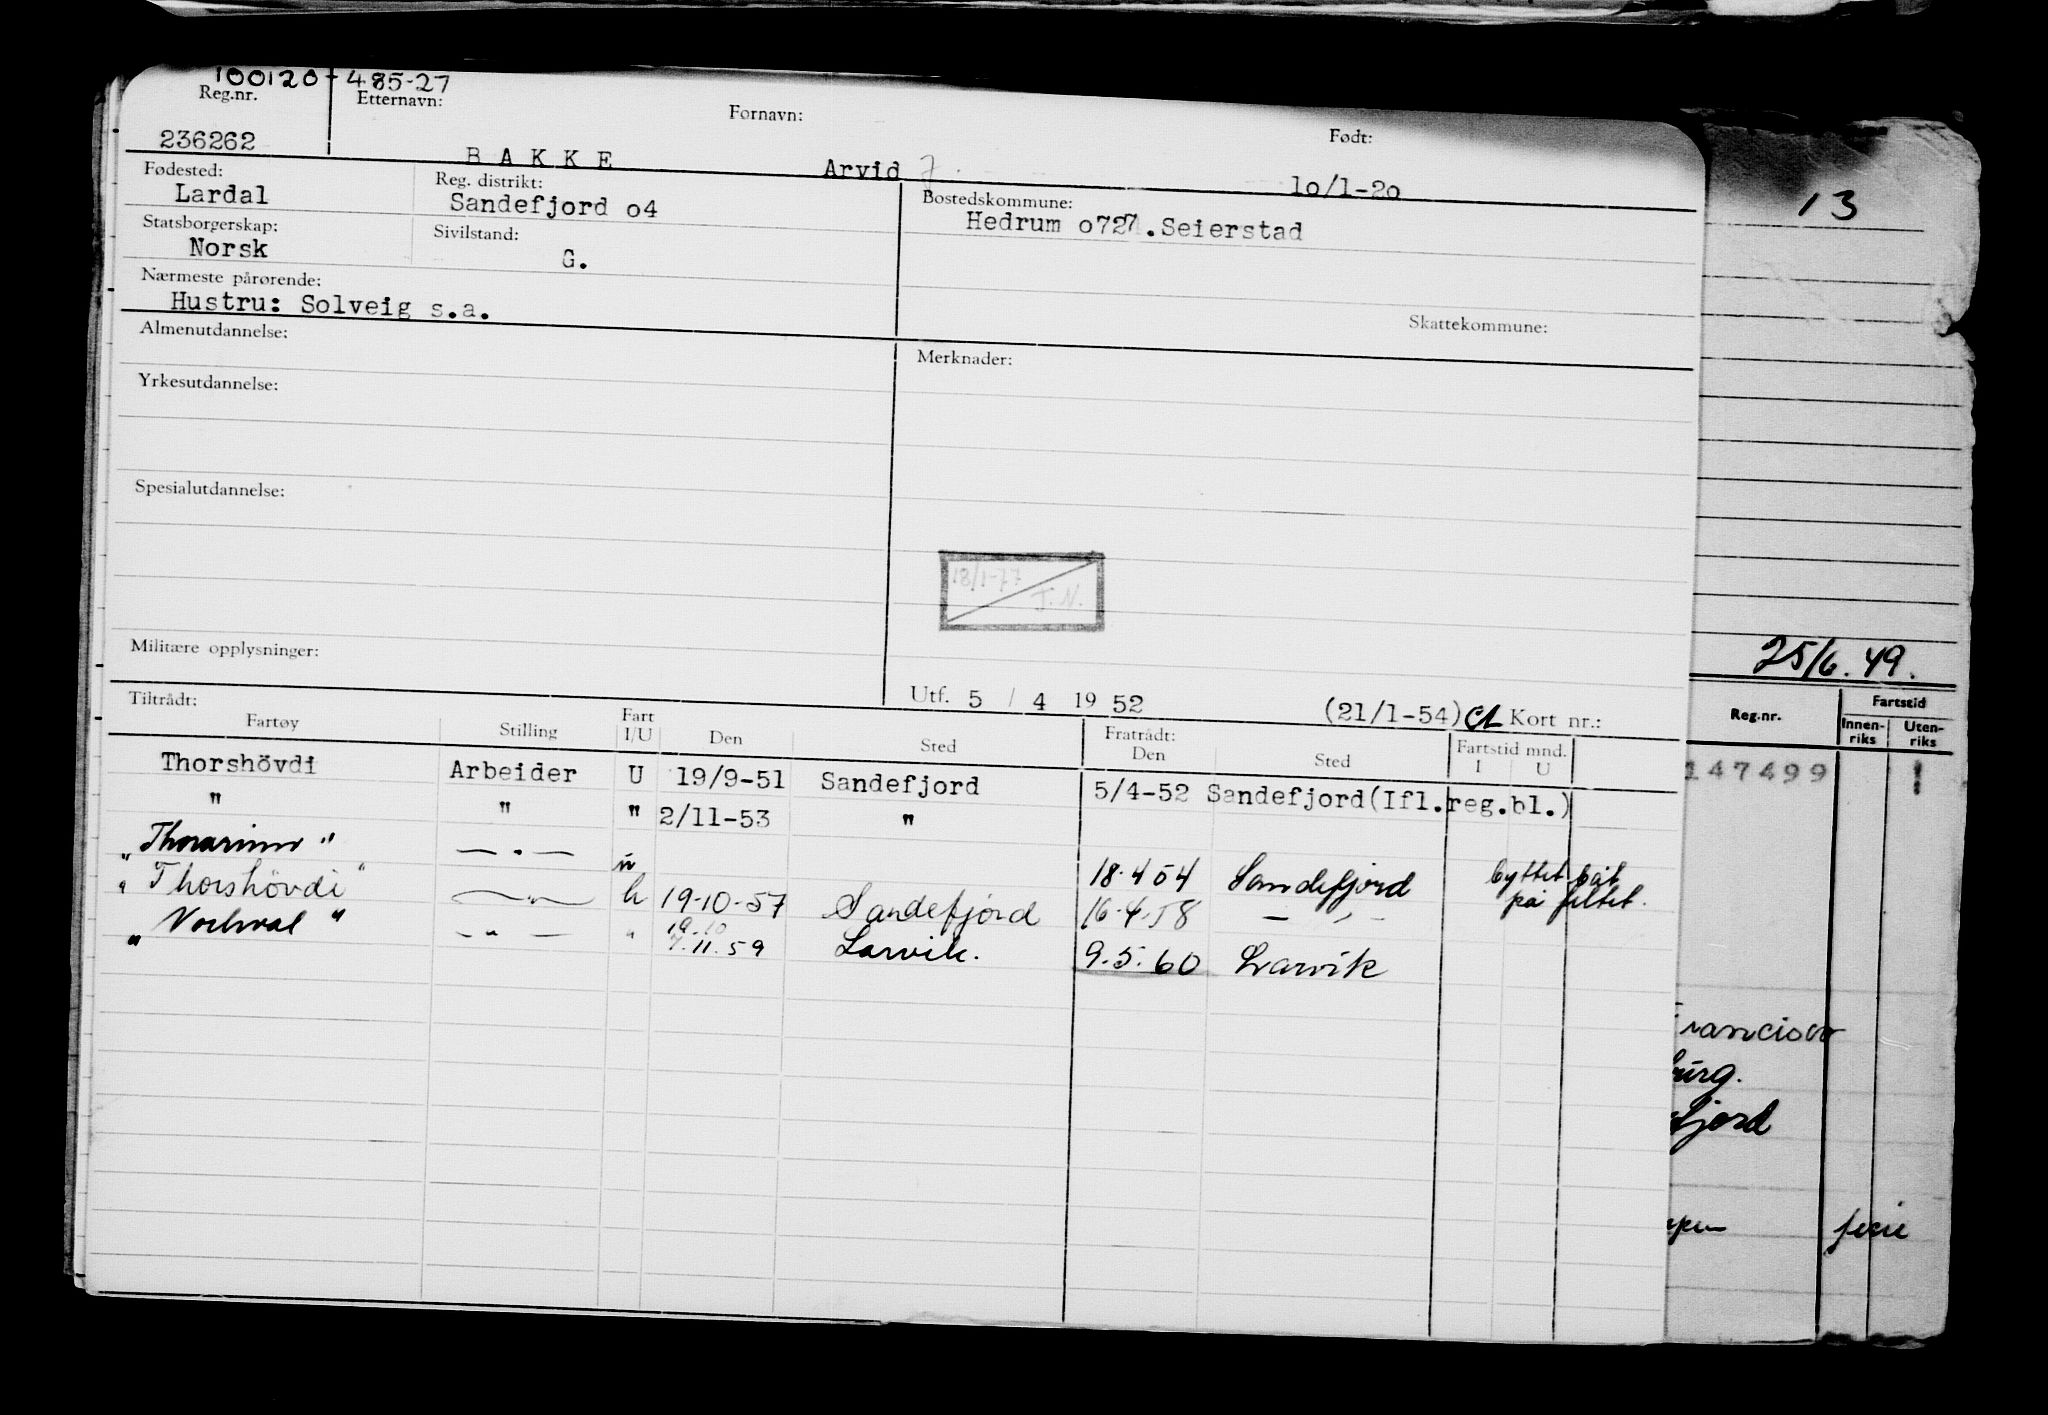 100120 - 485-27
Reg.nr. Etternavn: Fornavn: Født:
236262 BAKKE Arvid 10/1-20
Fødested: Reg. distrikt: Bostedskommune:
Lardal Sandefjord o4 Hedrum o727. Seierstad
Statsborgerskap: Sivilstand:
Norsk G.
Nærmeste pårørende:
Hustru: Solveig s.a.
Skattekommune:
Almenutdannelse: Merknader:
Yrkesutdannelse:
Spesialutdannelse:
18/1-77
J.N.
Militære opplysninger:
Utf. 5 / 4 19 52 (21/1-54) Kort nr.:
Tiltrådt: Fratrådt:
Fartøy Stilling Fart I/U Den Sted Den Sted Fartstid mnd. I U
Thorshövdi Arbeider U 19/9-51 Sandefjord 5/4-52 Sandefjord(Ifl.reg.bl.)
" " " 2/11-53 "
"Thorarinn" — " — u 18.4 54 Sandefjord byttet båt på feltet.
"Thorshövdi" — " — U 19-10-57 Sandefjord 16.4.58 — " —
"Norhval" — " — " 7.11.59 Larvik. 9.5.60 Larvik
13
25/6.49.
Reg.nr. Fartstid
Innenriks Utenriks
147499
Francisco
burg.
fjord
ferie